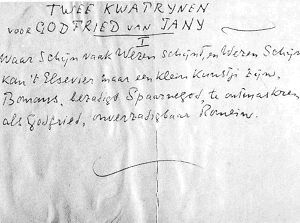 TWEE KWATRYNEN
voor GODFRIED van JANY
I
Waar Schijn vaak Wezen schijnt, en Wezen Schijn
kan 't Elsevier maar een klein kunstje zijn,
Bomans, bezadigd Spaarnegod, te ontmaskren
als Godfried, onverzadigbaar Romein.